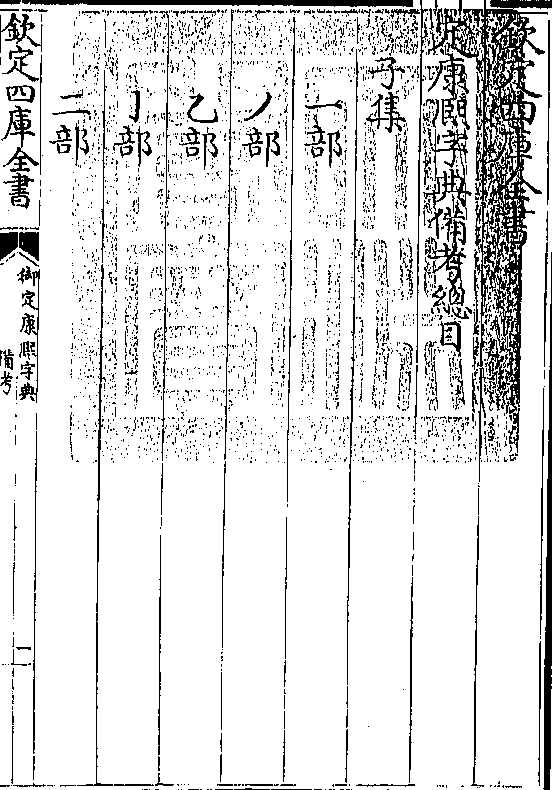 欽定四庫全書
定康熙字典備考總目
子集
一部
丿部
乙部
亅部
二部
欽定四庫全書
御定康熙字典
備考
二